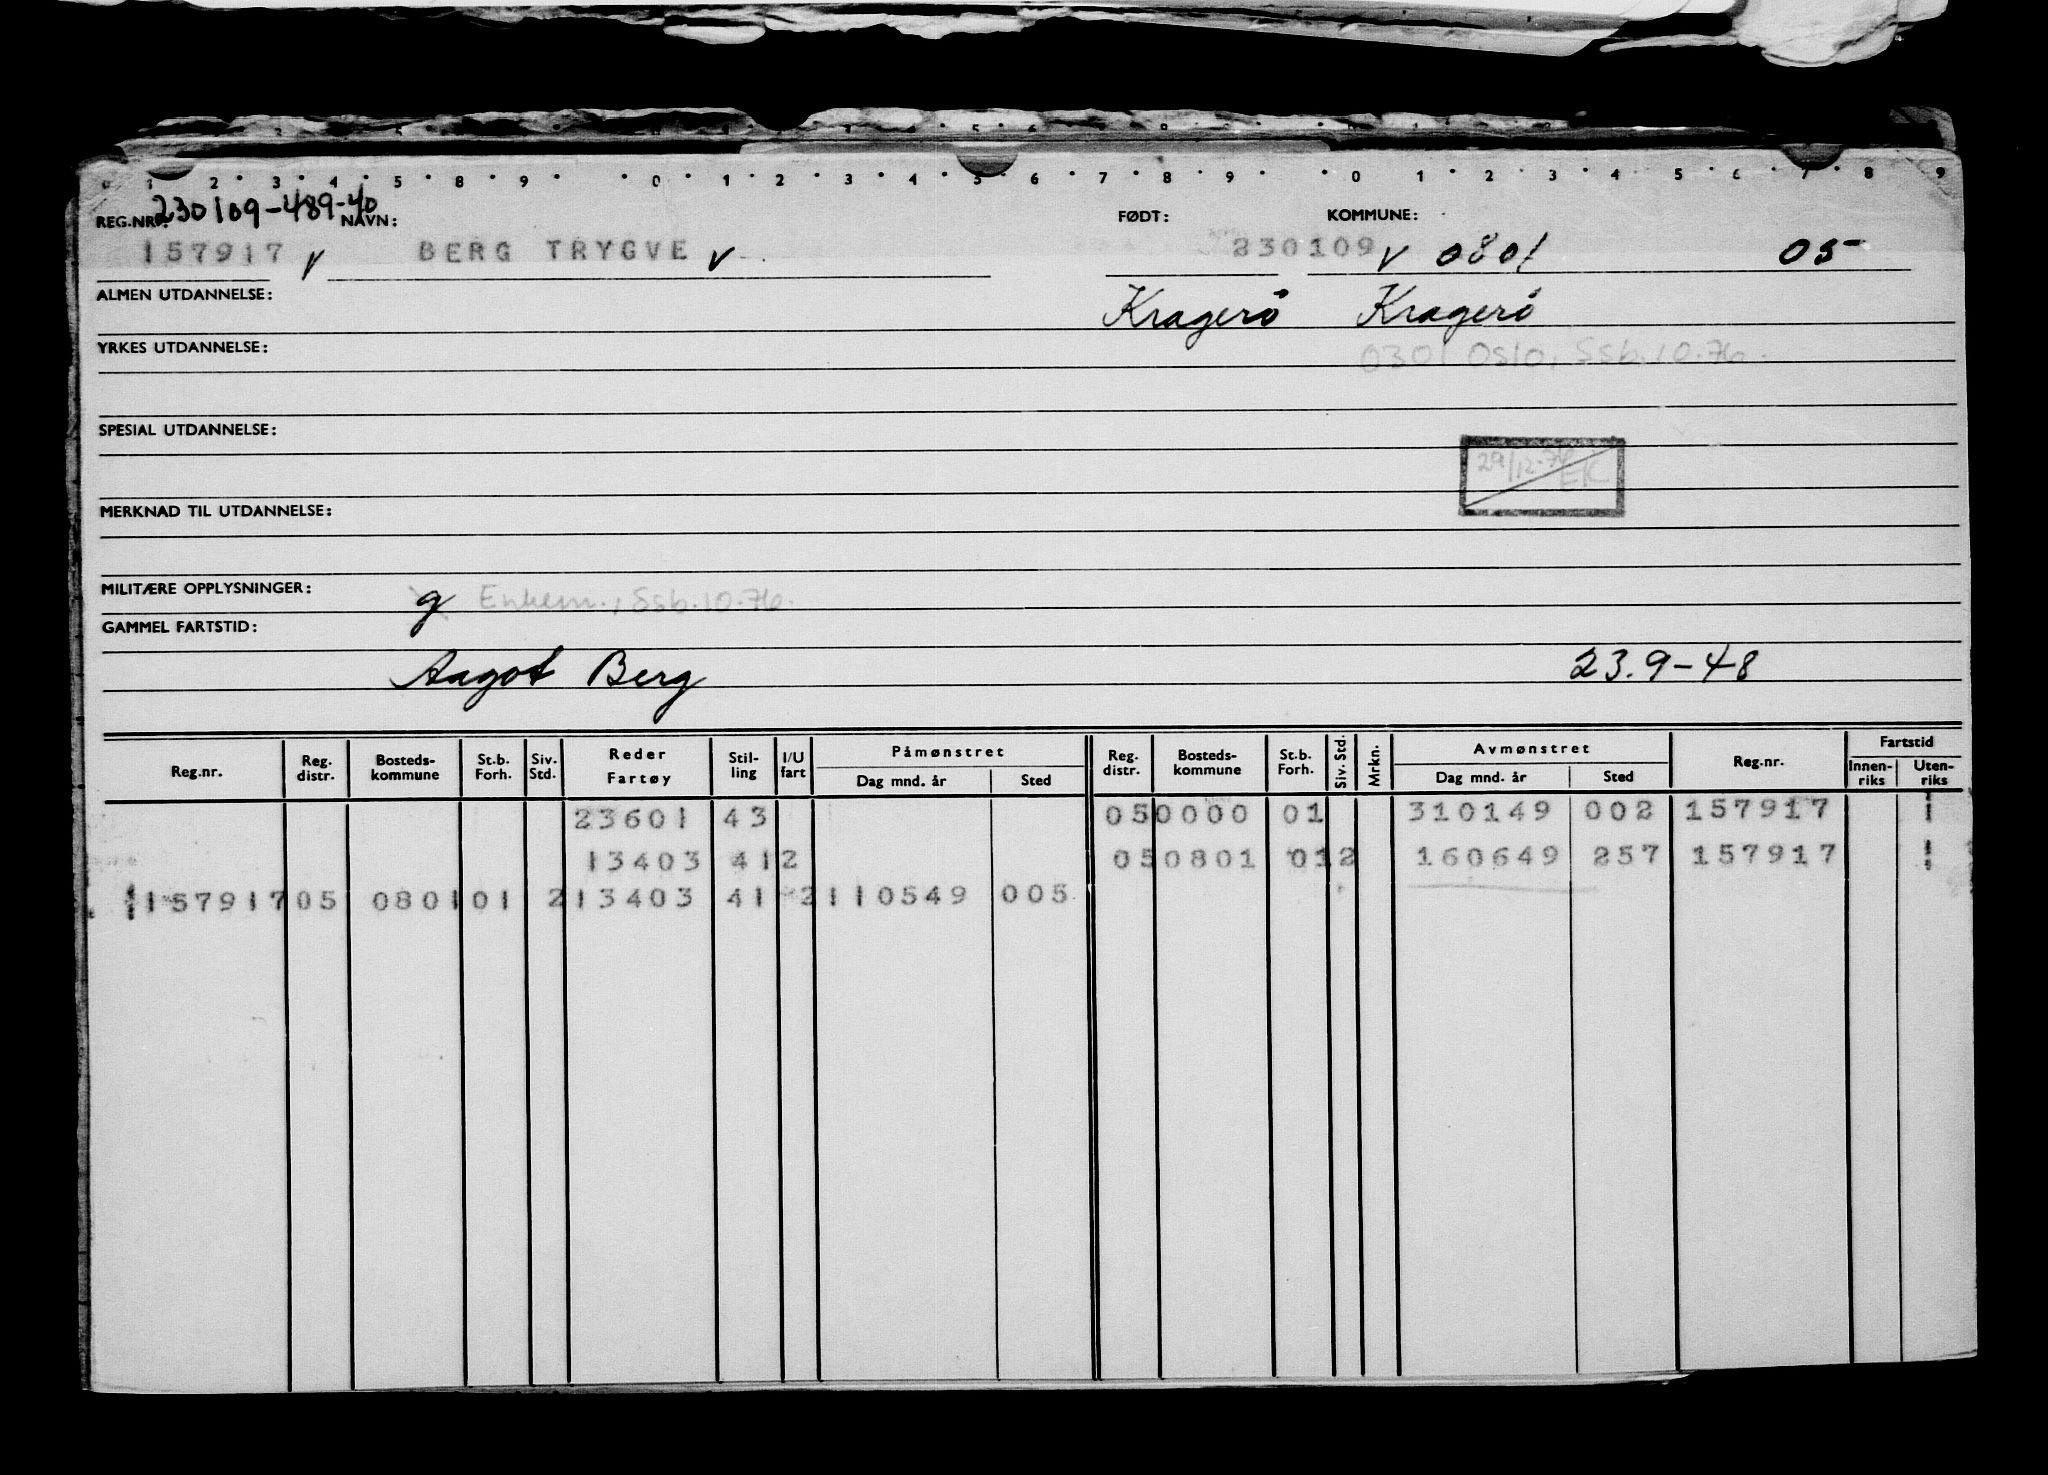 1 2 3 4 5 8 9 0 1 2 3 4 5 6 7 8 9 0 1 2 3 4 5 6 7 8 9
230109-489-40
REG.NR.: NAVN: FØDT: KOMMUNE:
157917 v BERG TRYGVE v 230109 v 0801 05
ALMEN UTDANNELSE: Kragerö Kragerö
YRKES UTDANNELSE: 0301 Oslo, Ssb.10.76.
SPESIAL UTDANNELSE:
29/12-76 EK
MERKNAD TIL UTDANNELSE:
MILITÆRE OPPLYSNINGER: g Enkem., Ssb.10.76.
GAMMEL FARTSTID:
Aagot Berg 23.9-48
Reg.nr. Reg. distr. Bosteds-kommune St.b. Forh. Siv. Std. Reder Fartøy Stil-ling I/U fart Påmønstret Dag mnd. år Sted Reg. distr. Bosteds-kommune St.b. Forh. Siv. Std. Mrkn. Avmønstret Dag mnd. år Sted Reg.nr. Fartstid Innen-riks Uten-riks
23601 43 050000 01 310149 002 157917 1
13403 412 050801 012 160649 257 157917 1
157917 05 0801 01 2 13403 41 2 110549 005